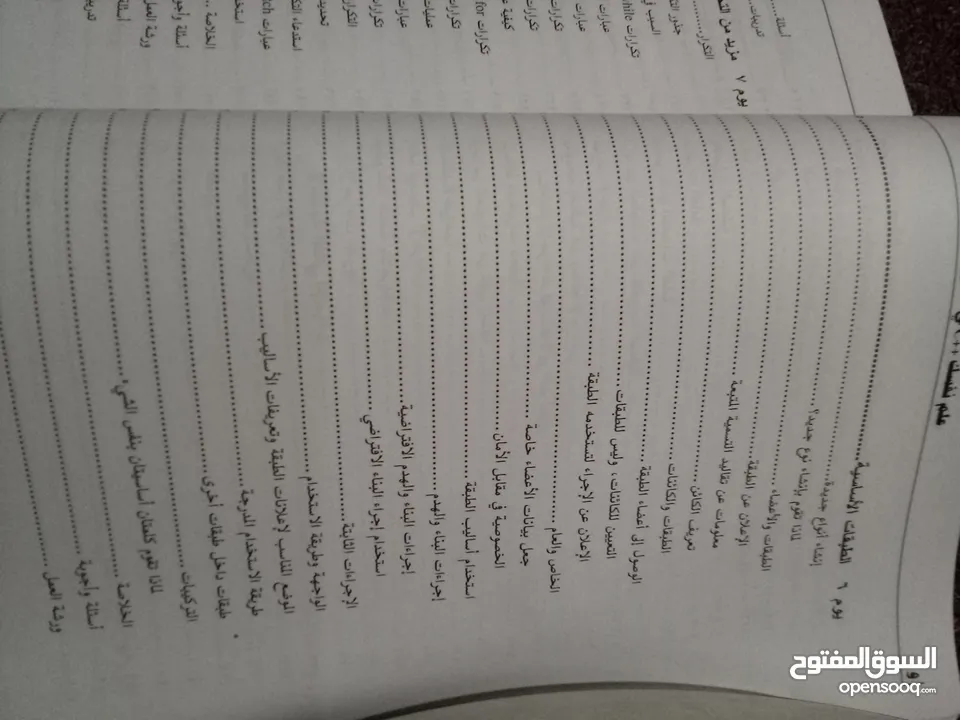 علم نفسك
يوم ٦ الطبقات الأساسية
إنشاء أنواع جديدة
لماذا نقوم بإنشاء نوع جديد؟
الطبقات والأعضاء
الإعلان عن الطبقة
معلومات عن تقاليد التسمية المتبعة
تعريف الكائن
الطبقات والكائنات
الوصول إلى أعضاء الطبقة
التعيين للكائنات، وليس للطبقات
الإعلان عن الإجراء لتستخدمه الطبقة
الخاص والعام
جعل بيانات الأعضاء خاصة
الخصوصية في مقابل الأمان
استخدام أساليب الطبقة
إجراءات البناء والهدم
إجراءات البناء والهدم الافتراضية
استخدام إجراء البناء الافتراضي
الإجراءات الثابتة
الواجهة وطريقة الاستخدام
الموضع المناسب لإعلانات الطبقة وتعريفات الأساليب
طريقة الاستخدام المدرجة
طبقات داخل طبقات أخرى
التركيبات
لماذا تقوم كلمتان أساسيتان بنفس الشيء
الخلاصة
أسئلة وأجوبة
ورشة العمل
أسئلة
تدريبات
يوم ٧ مزيد من
التكرار
جذور
السبب في
تكرارات while
عبارات
عبارات
تكرارات
تكرارات
كيفية
تكرارات for
تكرارات
عمليات
عبارات
تكرارات
التكرار
تحديد
استدعاء
عبارات
استخدام
الخلاصة
أسئلة وأجوبة
ورشة العمل
أسئلة
السوق المفتوح
opensooq.com